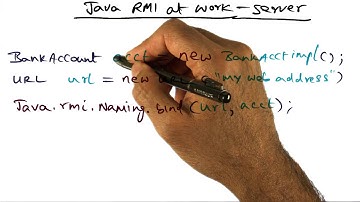 Java RMI at work - server
BankAccount acct = new BankAcctimpl();
URL url = new "My web address")
Java.rmi.Naming.bind (url, acct);